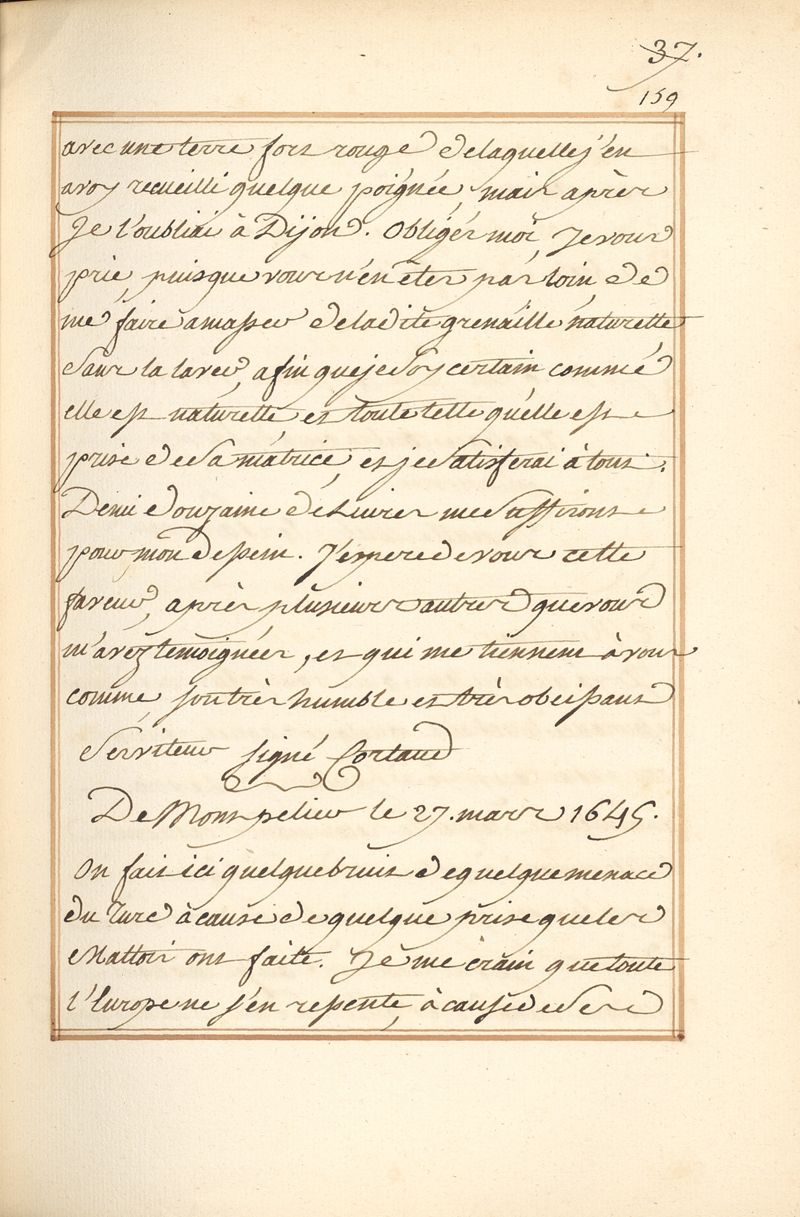 37.
159
avec une terre fort rouge de laquelle j'en
avoy recueilli quelque poignée, mais après
Je l'oubliai à Dijon. Obligés moi, Je vous
prie, puisque vous n'en êtes pas loin, de
me faire amasser de ladite grenaille naturelle
sans la laver, afin que je soy certain comme
elle est naturelle et toute telle qu'elle est
prise de sa matrice, et je satisferai à tout.
Demi douzaine de Livres me suffiront
pour mon dessein. J'espere de vous cette
faveur, après plusieurs autres que vous
m'avez temoignées, et qui me tiennent à vous
comme, son très humble et très obeissant
Serviteur signé Cortaud
De Monspelier le 27. mars 1645.
On fait ici quelque bruit de quelque menace
du Turc à cause de quelque prise que les
Maltois ont faite. Je me crain que toute
l'Europe ne s'en ressente, à cause de ses